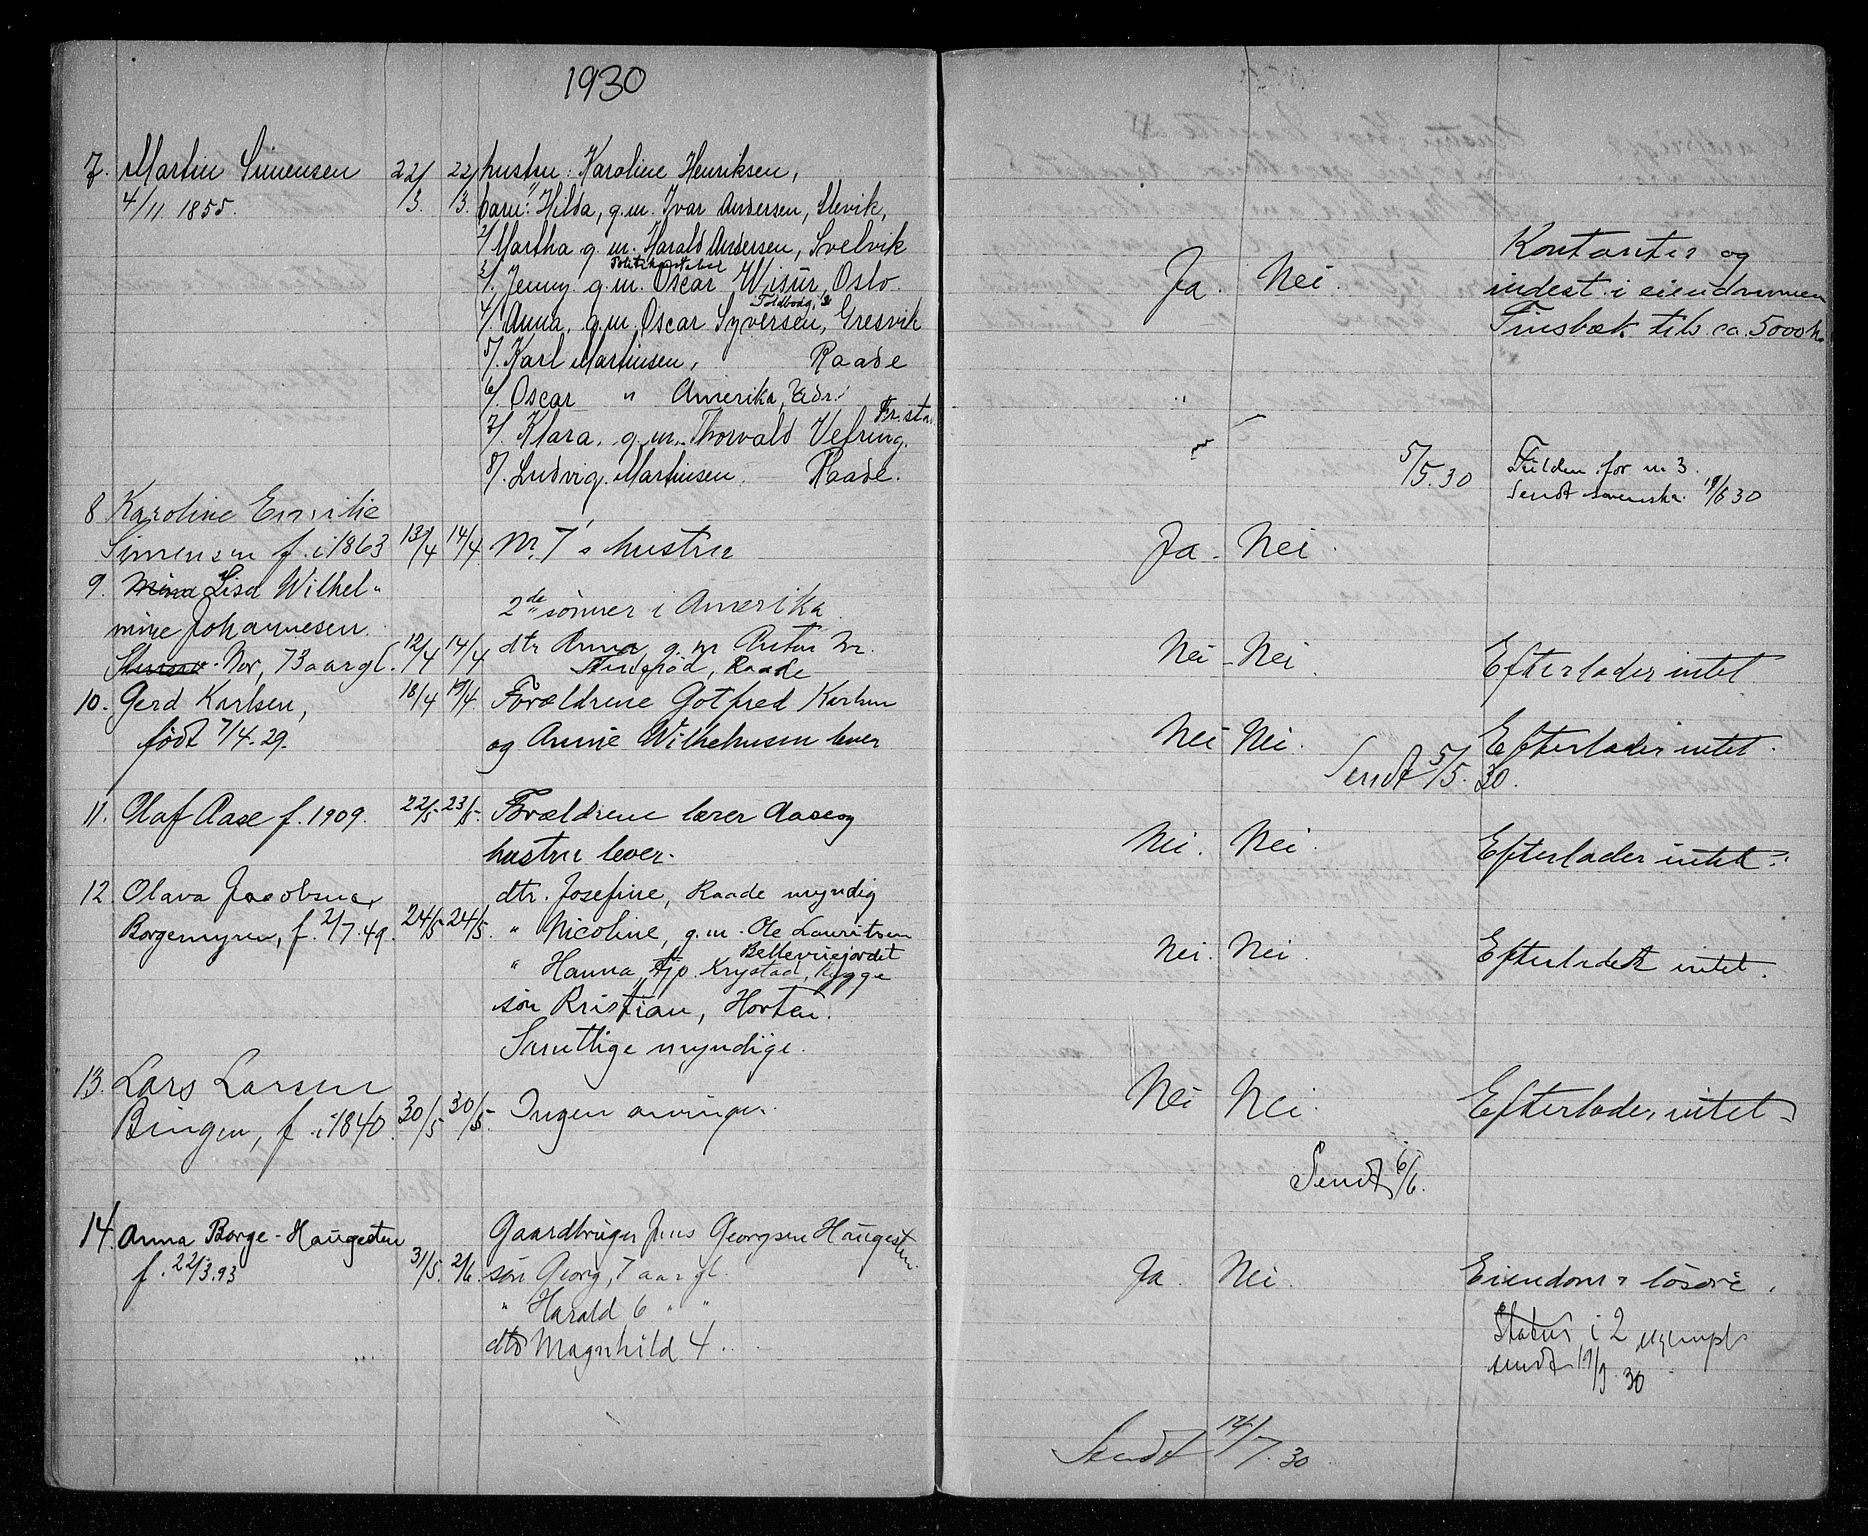 1930
7. Martin Simensen 22/3. 22/3. hustru: Karoline Henriksen,
4/11 1855. barn: 1/ Hilda, g.m. Ivar Andersen, Slevik,
2/ Martha g.m. Harald Andersen, Svelvik
3/. Jenny g.m. Politikonstabel Oscar Wisur, Oslo.
4/ Anna, g.m. Oscar Syversen, Gresvik
5/. Karl Martinsen, Raade
6/. Oscar " Amerika,
7/. Klara, g.m. Thorvald Vefring, Fr.stad
8/. Ludvig Martinsen. Raade.
Ja. Nei. Kontanter og
indest. i eiendommen
tils. ca. 5000 kr
5/5. 30 for nr 3.
Sendt 19/6 30
8 Karoline Emilie
Simensen f. i 1863 13/4 14/4 Nr. 7's hustru Ja. Nei.
9. Mina Lisa Wilhel-
mine Johannesen 2de sønner i Amerika
Nor, 73 aar gl. 12/4 14/4 dtr Anna, g.m. Anton
Raade Nei - Nei Efterlader intet
10. Gerd Karlsen, 18/4 19/4 Forældrene Gotfred Karlsen
født 7/4. 29. og Annie Wilhelmsen lever Nei Nei. Efterlader intet.
Sendt 5/5. 30.
11. Olaf Aase f. 1909. 22/5. 23/5. Forældrene lærer Aase og
hustru lever. Nei. Nei. Efterlader intet.
12. Olava Jacobsen dtr. Josefine, Raade myndig
Borgemyren, f. 2/7. 49. 24/5 24/5. " Nicoline, g.m. Ole Lauritsen
Bellevuejordet
" Hanna, Krystad, Rygge Nei. Nei. Efterlader intet.
søn Kristian, Horten.
Samtlige myndige.
13. Lars Larsen
Bingen, f. i 1840. 30/5 30/5. Ingen arvinger. Nei Nei. Efterlader intet
Sendt 6/6.
14. Anna Borge-Haugesten Gaardbruger Jens Georgsen Haugesten
f. 22/3. 93 31/5. 2/6. søn Georg, 7 aar gl. Ja. Nei. Eiendom & løsøre.
" Harald 6 " "
dtr Magnhild 4 " .
Status i 2 exempl
sendt 19/9 30
Sendt 14/7. 30